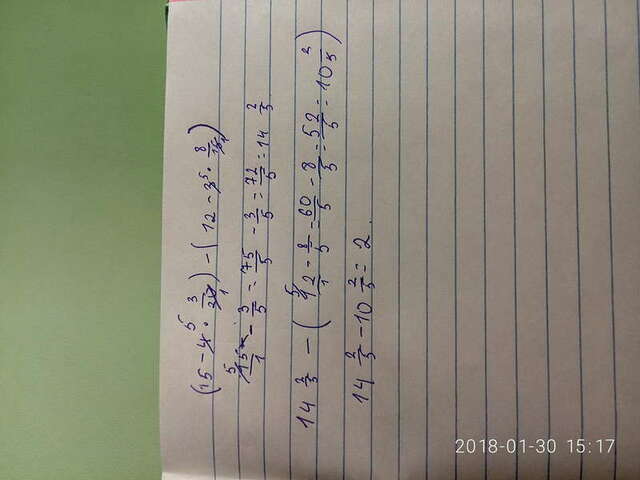 (15 - 4⁵ · 3/20₁) - (12 - 3⁵ · 8/15₁)
⁵15/1 - 3/5 = 75/5 - 3/5 = 72/5 = 14 2/5
14 2/5 - (⁵12/1 - 8/5 = 60/5 - 8/5 = 52/5 = 10 2/5)
14 2/5 - 10 2/5 = 2.
2018-01-30 15:17